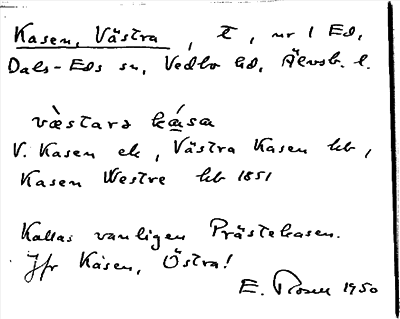 Kasen, Västra, t, nr 1 Ed,
Dals-Eds sn, Vedbo hd, Älvsb. l.
vä̀stara ká̱sa
V. Kasen ek, Västra Kasen kb,
Kasen Westre kb 1851
Kallas vanligen Prästekasen.
Jfr Kasen, Östra!
E. Rosell 1950